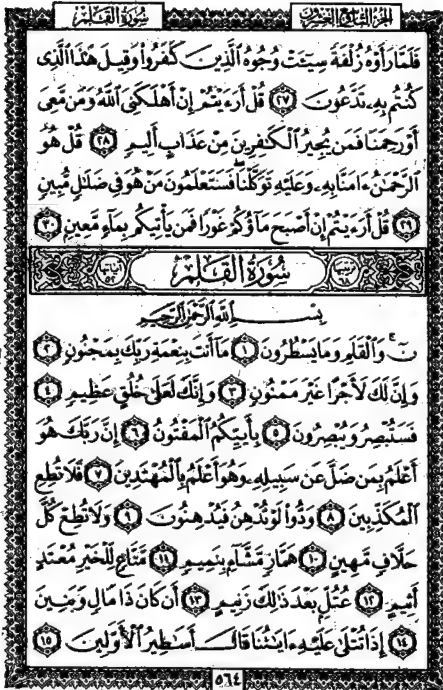 الجزء التاسع والعشرون
سورة القلم
فَلَمَّا رَأَوْهُ زُلْفَةً سِيٓـَٔتْ وُجُوهُ ٱلَّذِينَ كَفَرُوا۟ وَقِيلَ هَـٰذَا ٱلَّذِى
كُنتُم بِهِۦ تَدَّعُونَ ٢٧ قُلْ أَرَءَيْتُمْ إِنْ أَهْلَكَنِىَ ٱللَّهُ وَمَن مَّعِىَ
أَوْ رَحِمَنَا فَمَن يُجِيرُ ٱلْكَـٰفِرِينَ مِنْ عَذَابٍ أَلِيمٍ ٢٨ قُلْ هُوَ
ٱلرَّحْمَـٰنُ ءَامَنَّا بِهِۦ وَعَلَيْهِ تَوَكَّلْنَا فَسَتَعْلَمُونَ مَنْ هُوَ فِى ضَلَـٰلٍ مُّبِينٍ
٢٩ قُلْ أَرَءَيْتُمْ إِنْ أَصْبَحَ مَآؤُكُمْ غَوْرًا فَمَن يَأْتِيكُم بِمَآءٍ مَّعِينٍۭ ٣٠
ترتيبها ٦٨ سورة القلم آياتها ٥٢
بِسْمِ ٱللَّهِ ٱلرَّحْمَـٰنِ ٱلرَّحِيمِ
نٓ وَٱلْقَلَمِ وَمَا يَسْطُرُونَ ١ مَآ أَنتَ بِنِعْمَةِ رَبِّكَ بِمَجْنُونٍ ٢
وَإِنَّ لَكَ لَأَجْرًا غَيْرَ مَمْنُونٍ ٣ وَإِنَّكَ لَعَلَىٰ خُلُقٍ عَظِيمٍ ٤
فَسَتُبْصِرُ وَيُبْصِرُونَ ٥ بِأَييِّكُمُ ٱلْمَفْتُونُ ٦ إِنَّ رَبَّكَ هُوَ
أَعْلَمُ بِمَن ضَلَّ عَن سَبِيلِهِۦ وَهُوَ أَعْلَمُ بِٱلْمُهْتَدِينَ ٧ فَلَا تُطِعِ
ٱلْمُكَذِّبِينَ ٨ وَدُّوا۟ لَوْ تُدْهِنُ فَيُدْهِنُونَ ٩ وَلَا تُطِعْ كُلَّ
حَلَّافٍ مَّهِينٍ ١٠ هَمَّازٍ مَّشَّآءٍۭ بِنَمِيمٍ ١١ مَّنَّاعٍ لِّلْخَيْرِ مُعْتَدٍ
أَثِيمٍ ١٢ عُتُلٍّۭ بَعْدَ ذَٰلِكَ زَنِيمٍ ١٣ أَن كَانَ ذَا مَالٍ وَبَنِينَ
١٤ إِذَا تُتْلَىٰ عَلَيْهِ ءَايَـٰتُنَا قَالَ أَسَـٰطِيرُ ٱلْأَوَّلِينَ ١٥
٥٦٤